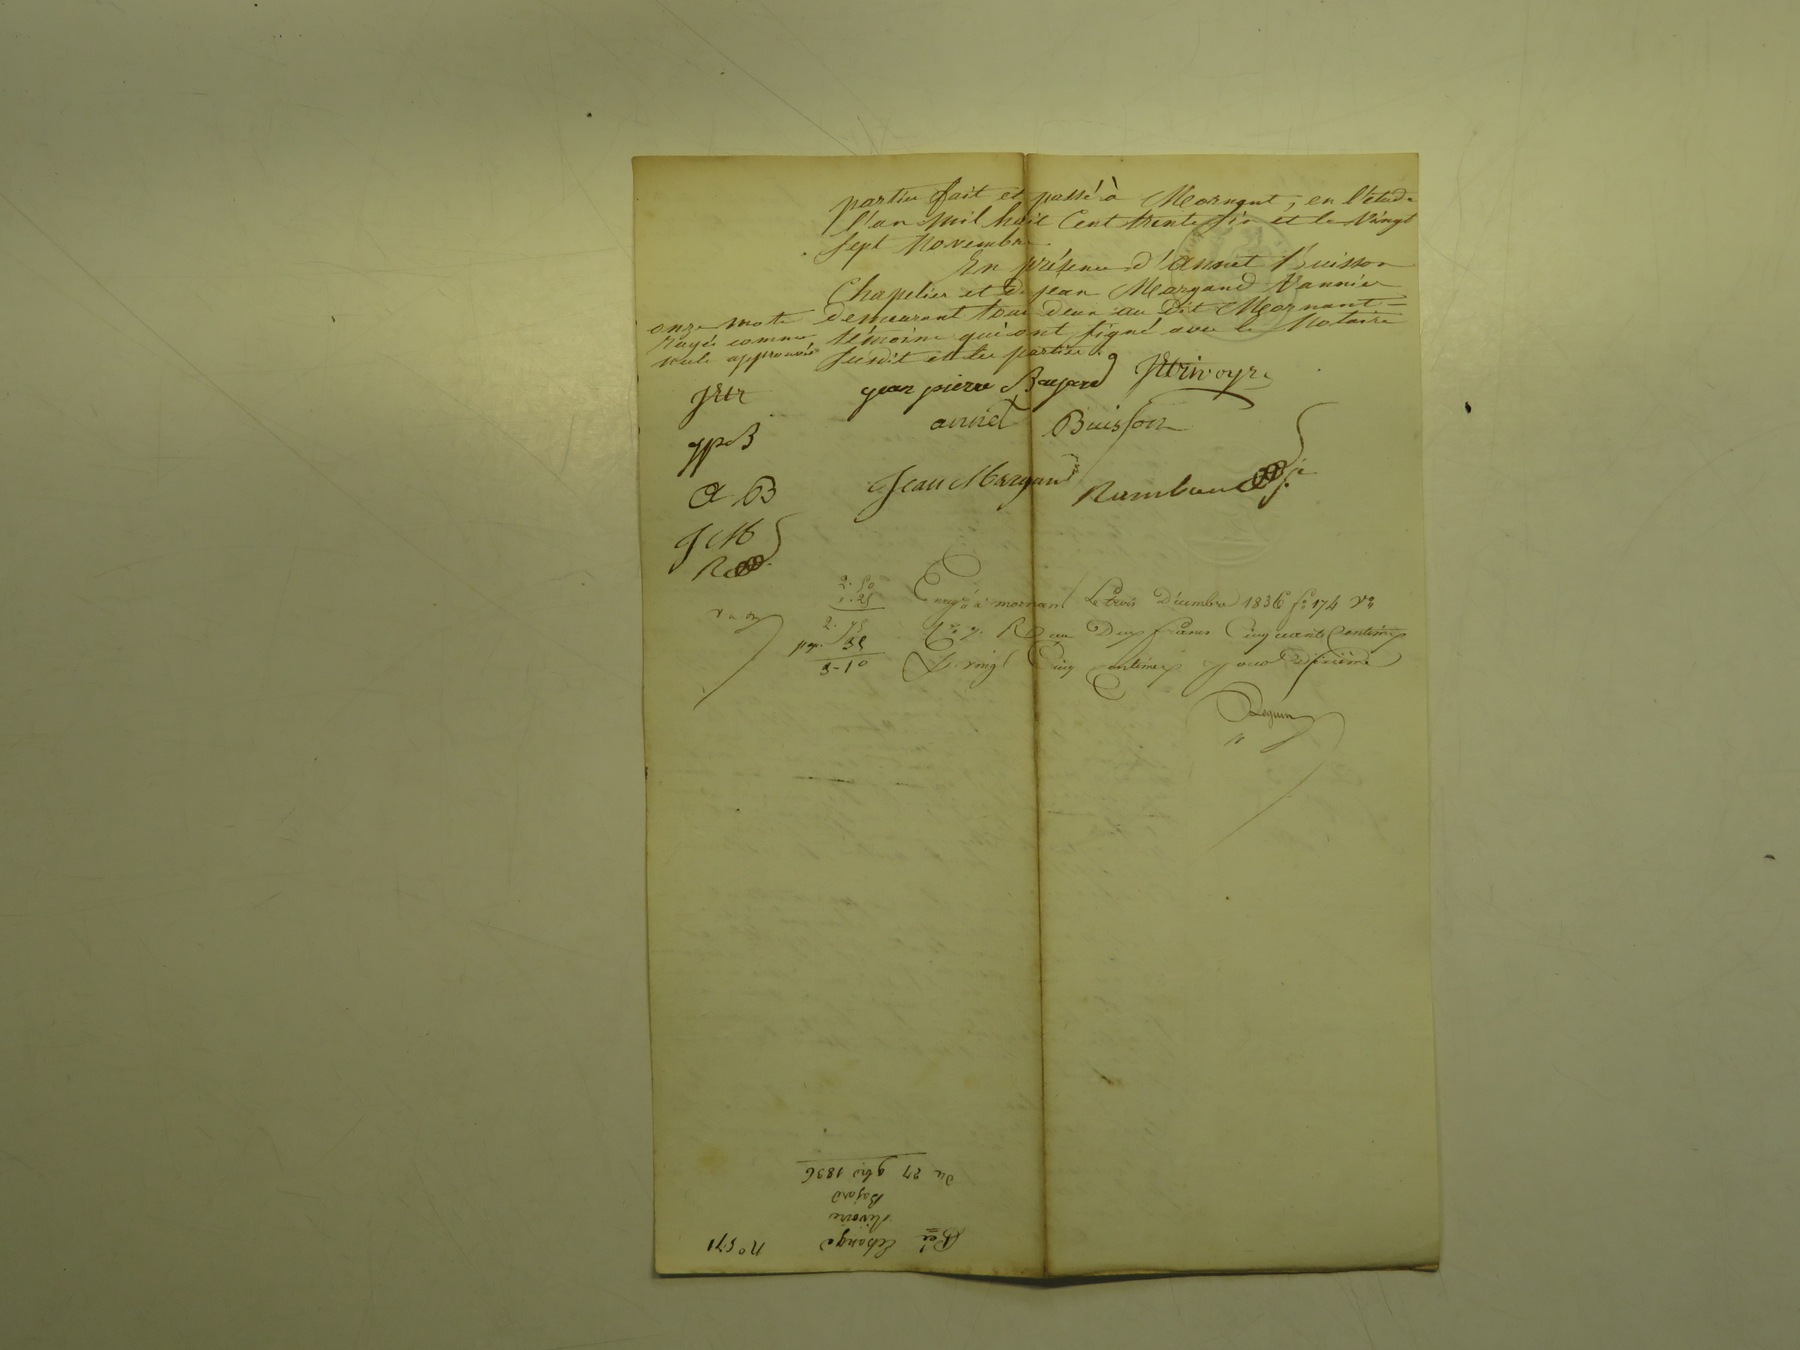 partie fait et passé à Mornant, en l'étude
l'an mil huit Cent trente six et le Vingt
sept novembre
En présence d'annet Buisson
Chapelier et de jean Margand Vannier
demeurant tous deux au dit Mornant
témoins qui ont signé avec le Notaire
susdit et les parties.
onze mots
rayés comme
nuls approuvés
jean pierre Bajard
annet Buisson
Jean Margand
JPB
A B
J M
2. 50
. 25
2. 75
35
3-10
à mornant Le trois Décembre 1836 f° 174 v°
Reçu Deux francs Cinquante Centimes
Et vingt Cinq centimes pour Dixième
n° 571
Echange
Rivoire
Bajard
Du 27 9bre 1836